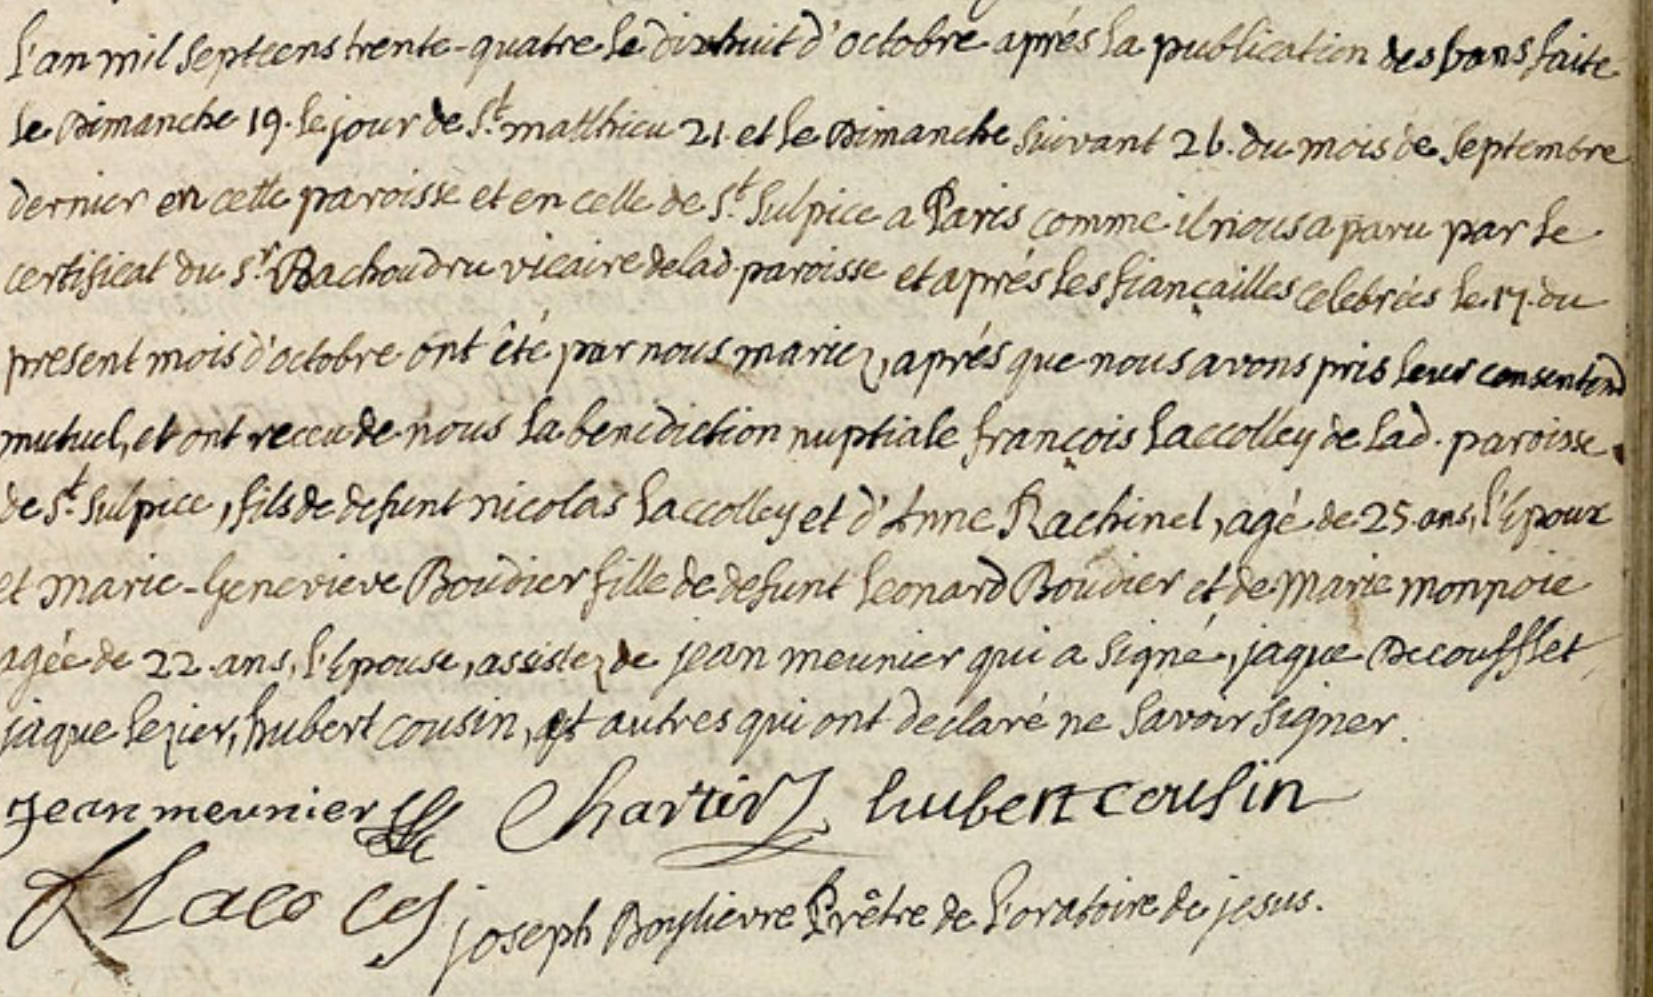 L'an mil septcens trente-quatre le dixhuit d'octobre aprés la publication des bans faite
le Dimanche 19. le jour de St. matthieu 21. et le Dimanche suivant 26. du mois de septembre
dernier en cette paroisse et en celle de St. Sulpice a Paris comme il nous a paru par le
certificat du Sr. Bachoudru vicaire de lad. paroisse et aprés les fiançailles celebrées le 17. du
present mois d'octobre ont êté par nous mariez, aprés que nous avons pris leur
mutuel, et ont receu de nous la benediction nuptiale françois Laccolley de lad. paroisse
de St. Sulpice, fils de defunt nicolas Laccolley et d'Anne Rachinel, agé de 25. ans, l'Epoux
et marie-Genevieve Boudier fille de defunt Leonard Boudier et de Marie monpoie
agée de 22. ans, l'Epouse, assistez de jean meunier qui a signé, jaque Decoufflet
jaque lezier, hubert cousin, et autres qui ont declaré ne savoir signer.
Jean meunier Chartier hubert cousin
joseph Prêtre de l'oratoire de jesus.